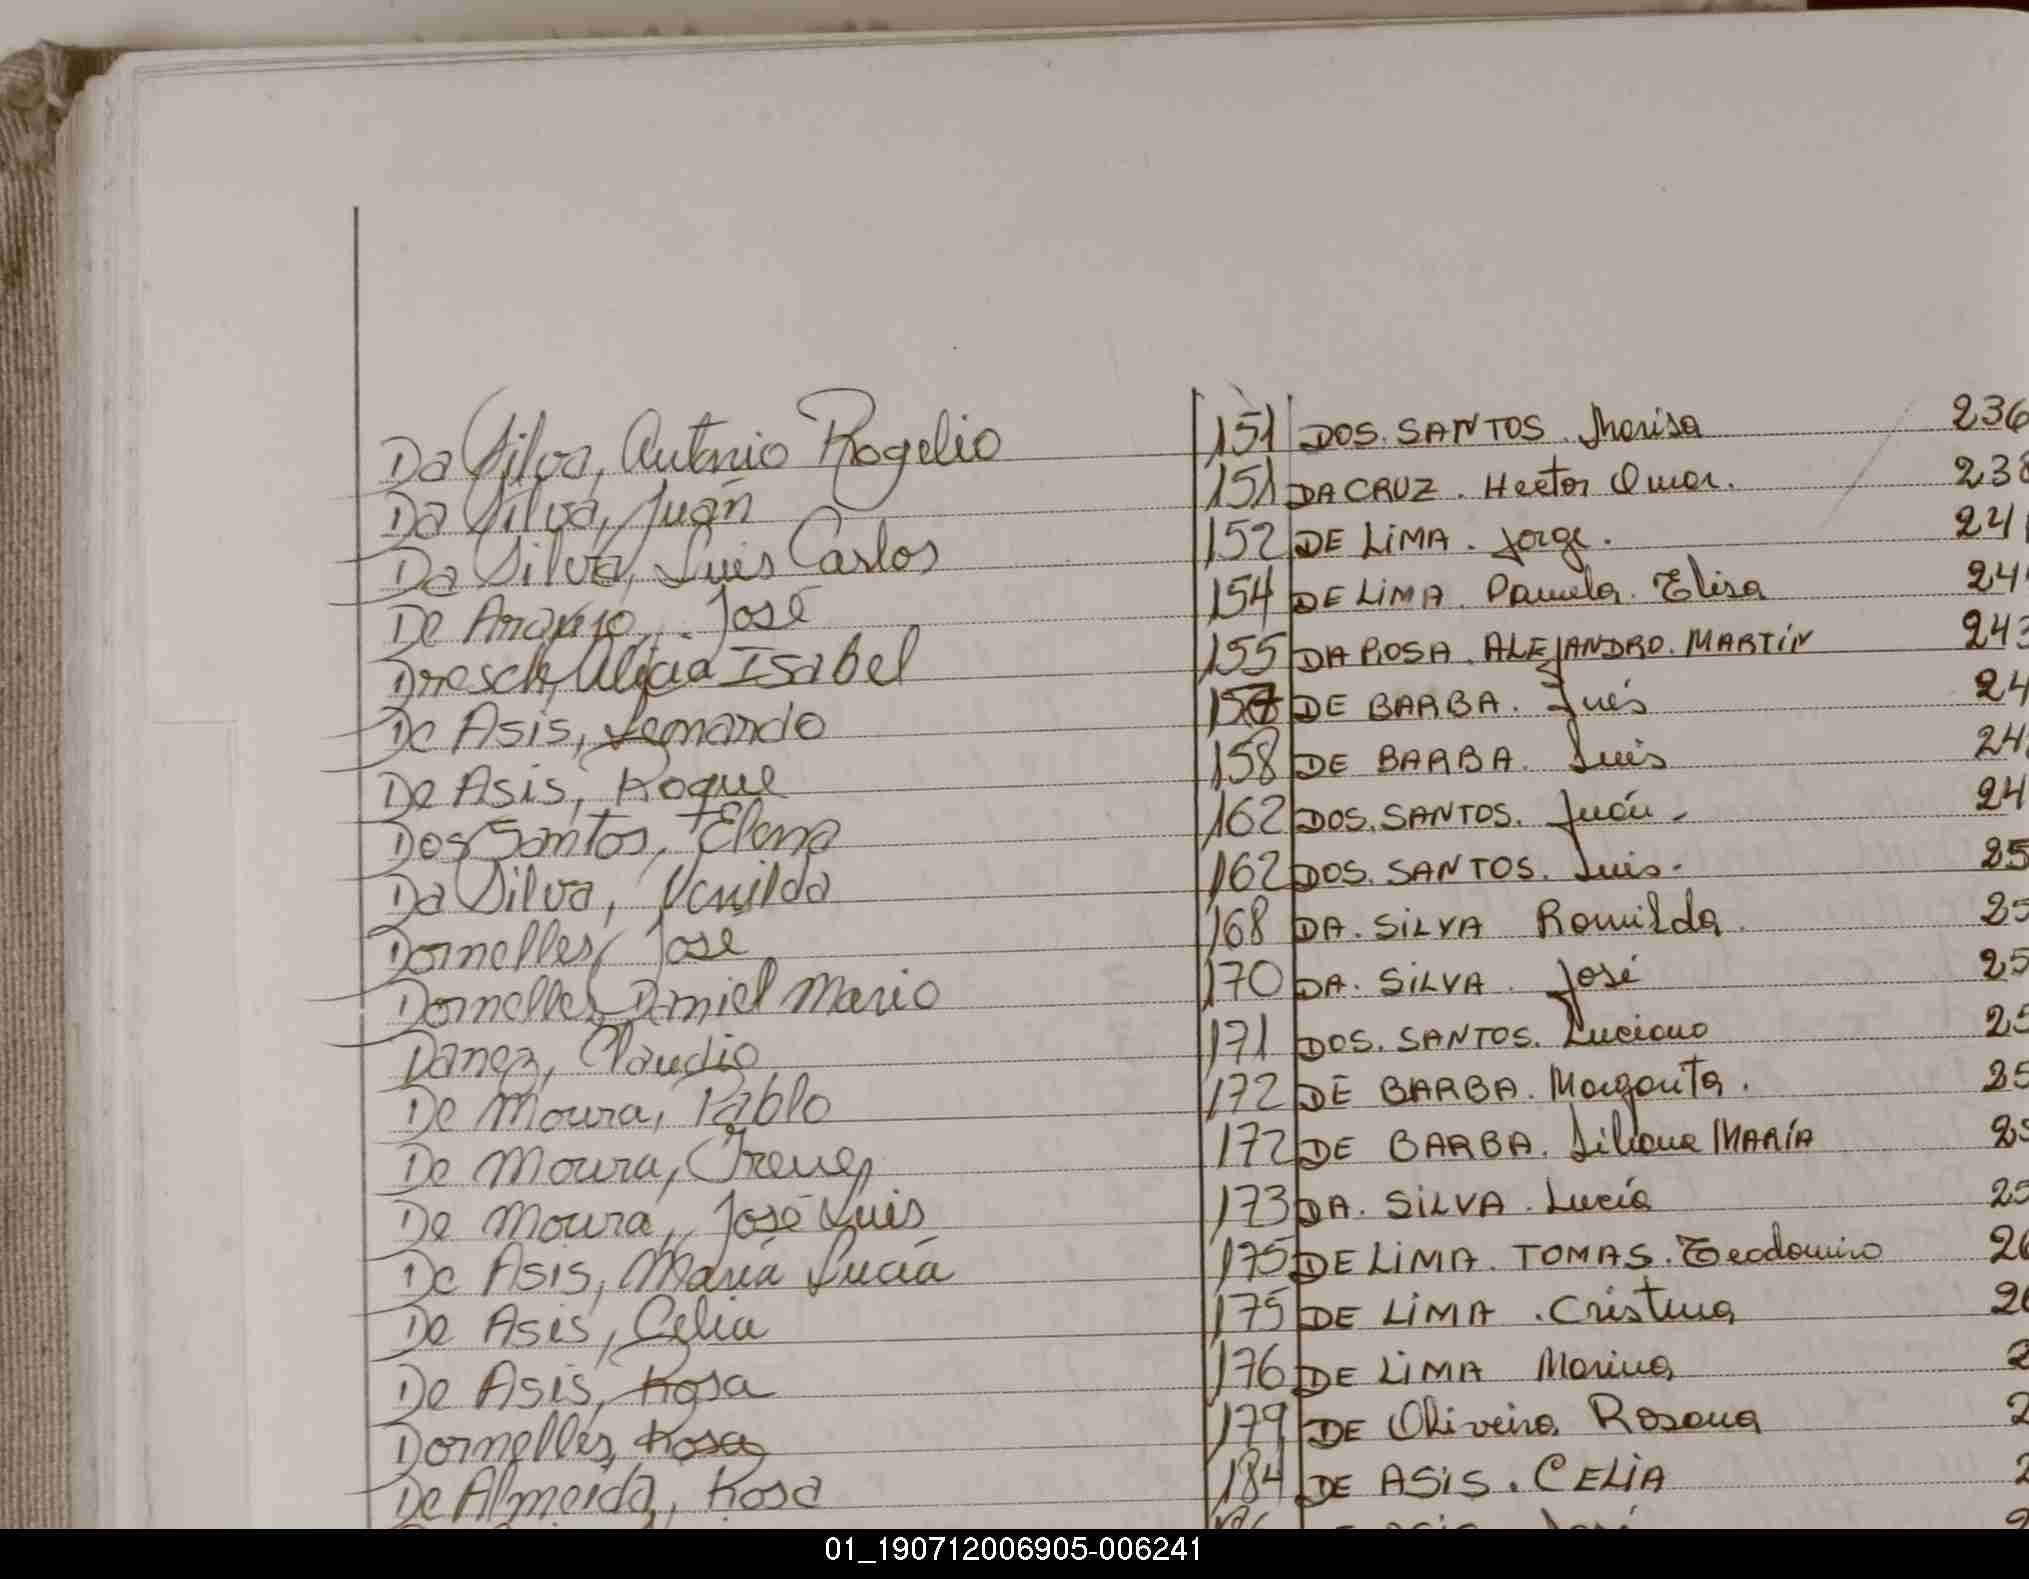 Da Silva, Antonio Rogelio 151
Da Silva, Juan 151
Da Silva, Luis Carlos 152
De Araujo, José 154
Dresch, Alicia Isabel 155
De Asis, Fernando 157
De Asis, Roque 158
Dos Santos, Elena 162
Da Silva, 162
Dornelles, José 168
Dornelles, Daniel Mario 170
Claudio 171
De Moura, Pablo 172
De Moura, Irene 172
De Moura, José Luis 173
De Asis, María Lucía 175
De Asis, Celia 175
De Asis, Rosa 176
Dornelles, Rosa 179
De Almeida, Rosa 184
DOS. SANTOS. Marisa 236
DA CRUZ. Hector Omar. 238
DE LIMA. Jorge. 241
DE LIMA. Pamela. Elisa 24
DA ROSA. ALEJANDRO. MARTÍN 243
DE BARBA. Inés 24
DE BARBA. Luis 24
DOS. SANTOS. Juan - 24
DOS. SANTOS. Luis. 25
DA. SILVA Romilda. 25
DA. SILVA. José 25
DOS. SANTOS. Luciano 25
DE BARBA. Margarita. 25
DE BARBA. Liliana MARÍA 25
DA. SILVA. Lucía 25
DE LIMA. TOMAS. Teodomiro 26
DE LIMA. Cristina 26
DE LIMA Marina 2
DE Oliveira Rosana 2
DE ASIS. CELIA 2
01_190712006905-006241